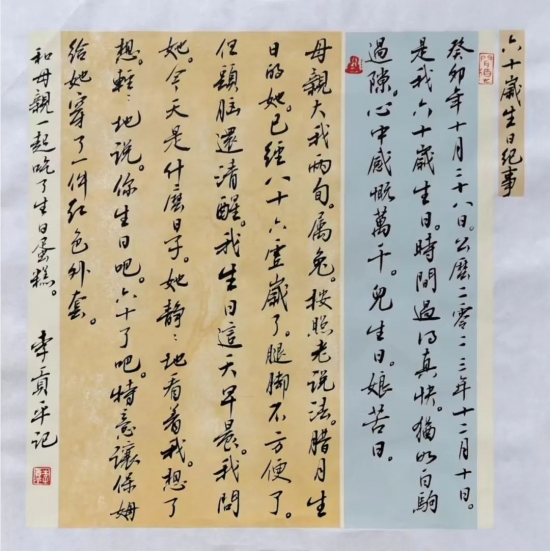 六十歲生日纪事
癸卯年十月二十八日。公曆二零二三年十二月十日。
是我六十歲生日。時間過得真快。猶如白駒
過隙。心中感慨萬千。兒生日。娘苦日。
母親大我兩旬。属兔。按照老说法。腊月生
日的她。已經八十六虛歲了。腿脚不方便了。
但頭脑還清醒。我生日這天早晨。我問
她。今天是什麽日子。她静々地看着我。想了
想。輕々地说。你生日吧。六十了吧。特意讓保姆
给她穿了一件红色外套。
和母親一起吃了生日蛋糕。
李 记